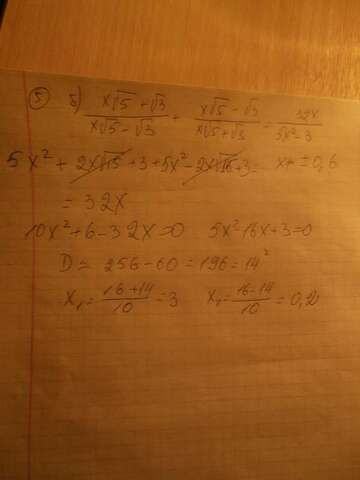 ⑤ б) (x√5 + √3)/(x√5 − √3) + (x√5 − √3)/(x√5 + √3) = 32x/(5x² − 3)
5x² + 2x√15 + 3 + 5x² − 2x√15 + 3 = x ≠ ± 0,6
= 32x
10x² + 6 − 32x = 0 5x² 16x + 3 = 0
D = 256 − 60 = 196 = 14²
x₁ = (16 + 14)/10 = 3 x₂ = (16 − 14)/10 = 0,2